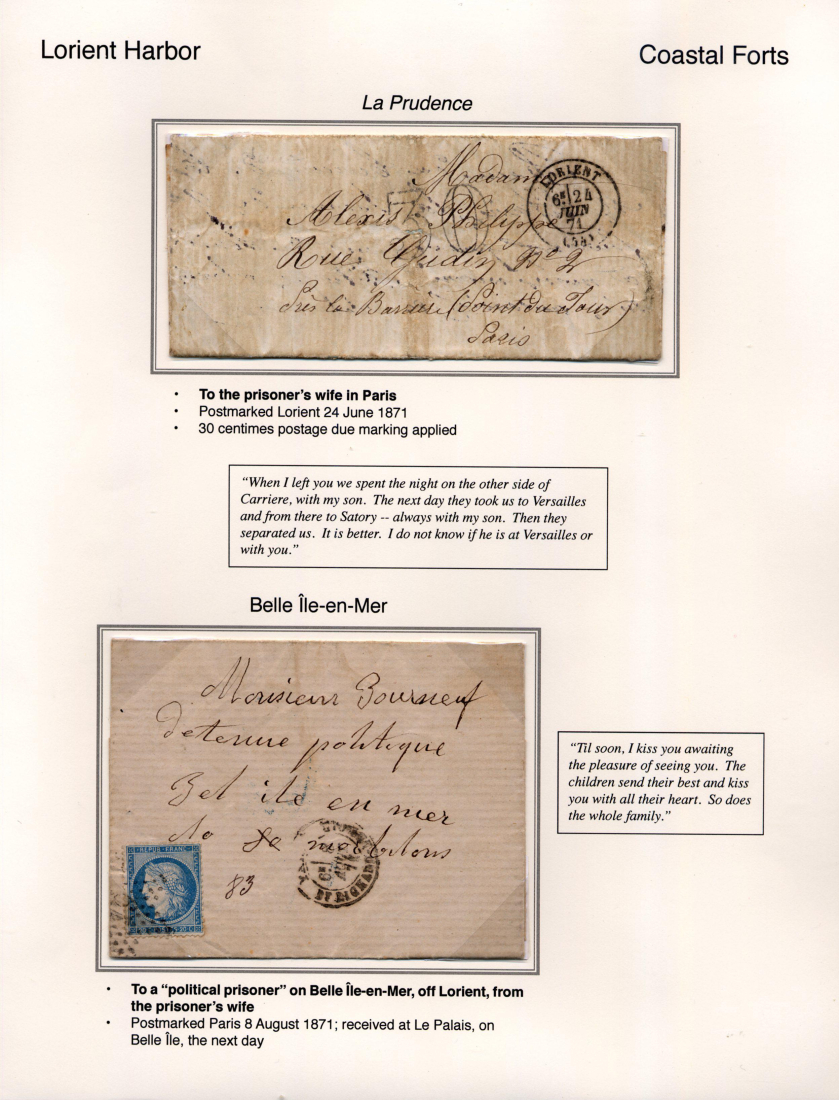 Lorient Harbor
Coastal Forts
La Prudence
Madame
Alexis Philippe
Rue Gudin No 2
Près la Barriere (Point du Jour)
Paris
LORIENT
6E 24
JUIN
71
(54)
30
• To the prisoner's wife in Paris
• Postmarked Lorient 24 June 1871
• 30 centimes postage due marking applied
"When I left you we spent the night on the other side of
Carriere, with my son. The next day they took us to Versailles
and from there to Satory -- always with my son. Then they
separated us. It is better. I do not know if he is at Versailles or
with you."
Belle Île-en-Mer
Monsieur Bourneuf
detenue politique
Bel ile en mer
83
REPUB FRANC
"Til soon, I kiss you awaiting
the pleasure of seeing you. The
children send their best and kiss
you with all their heart. So does
the whole family."
• To a "political prisoner" on Belle Île-en-Mer, off Lorient, from
the prisoner's wife
• Postmarked Paris 8 August 1871; received at Le Palais, on
Belle Île, the next day